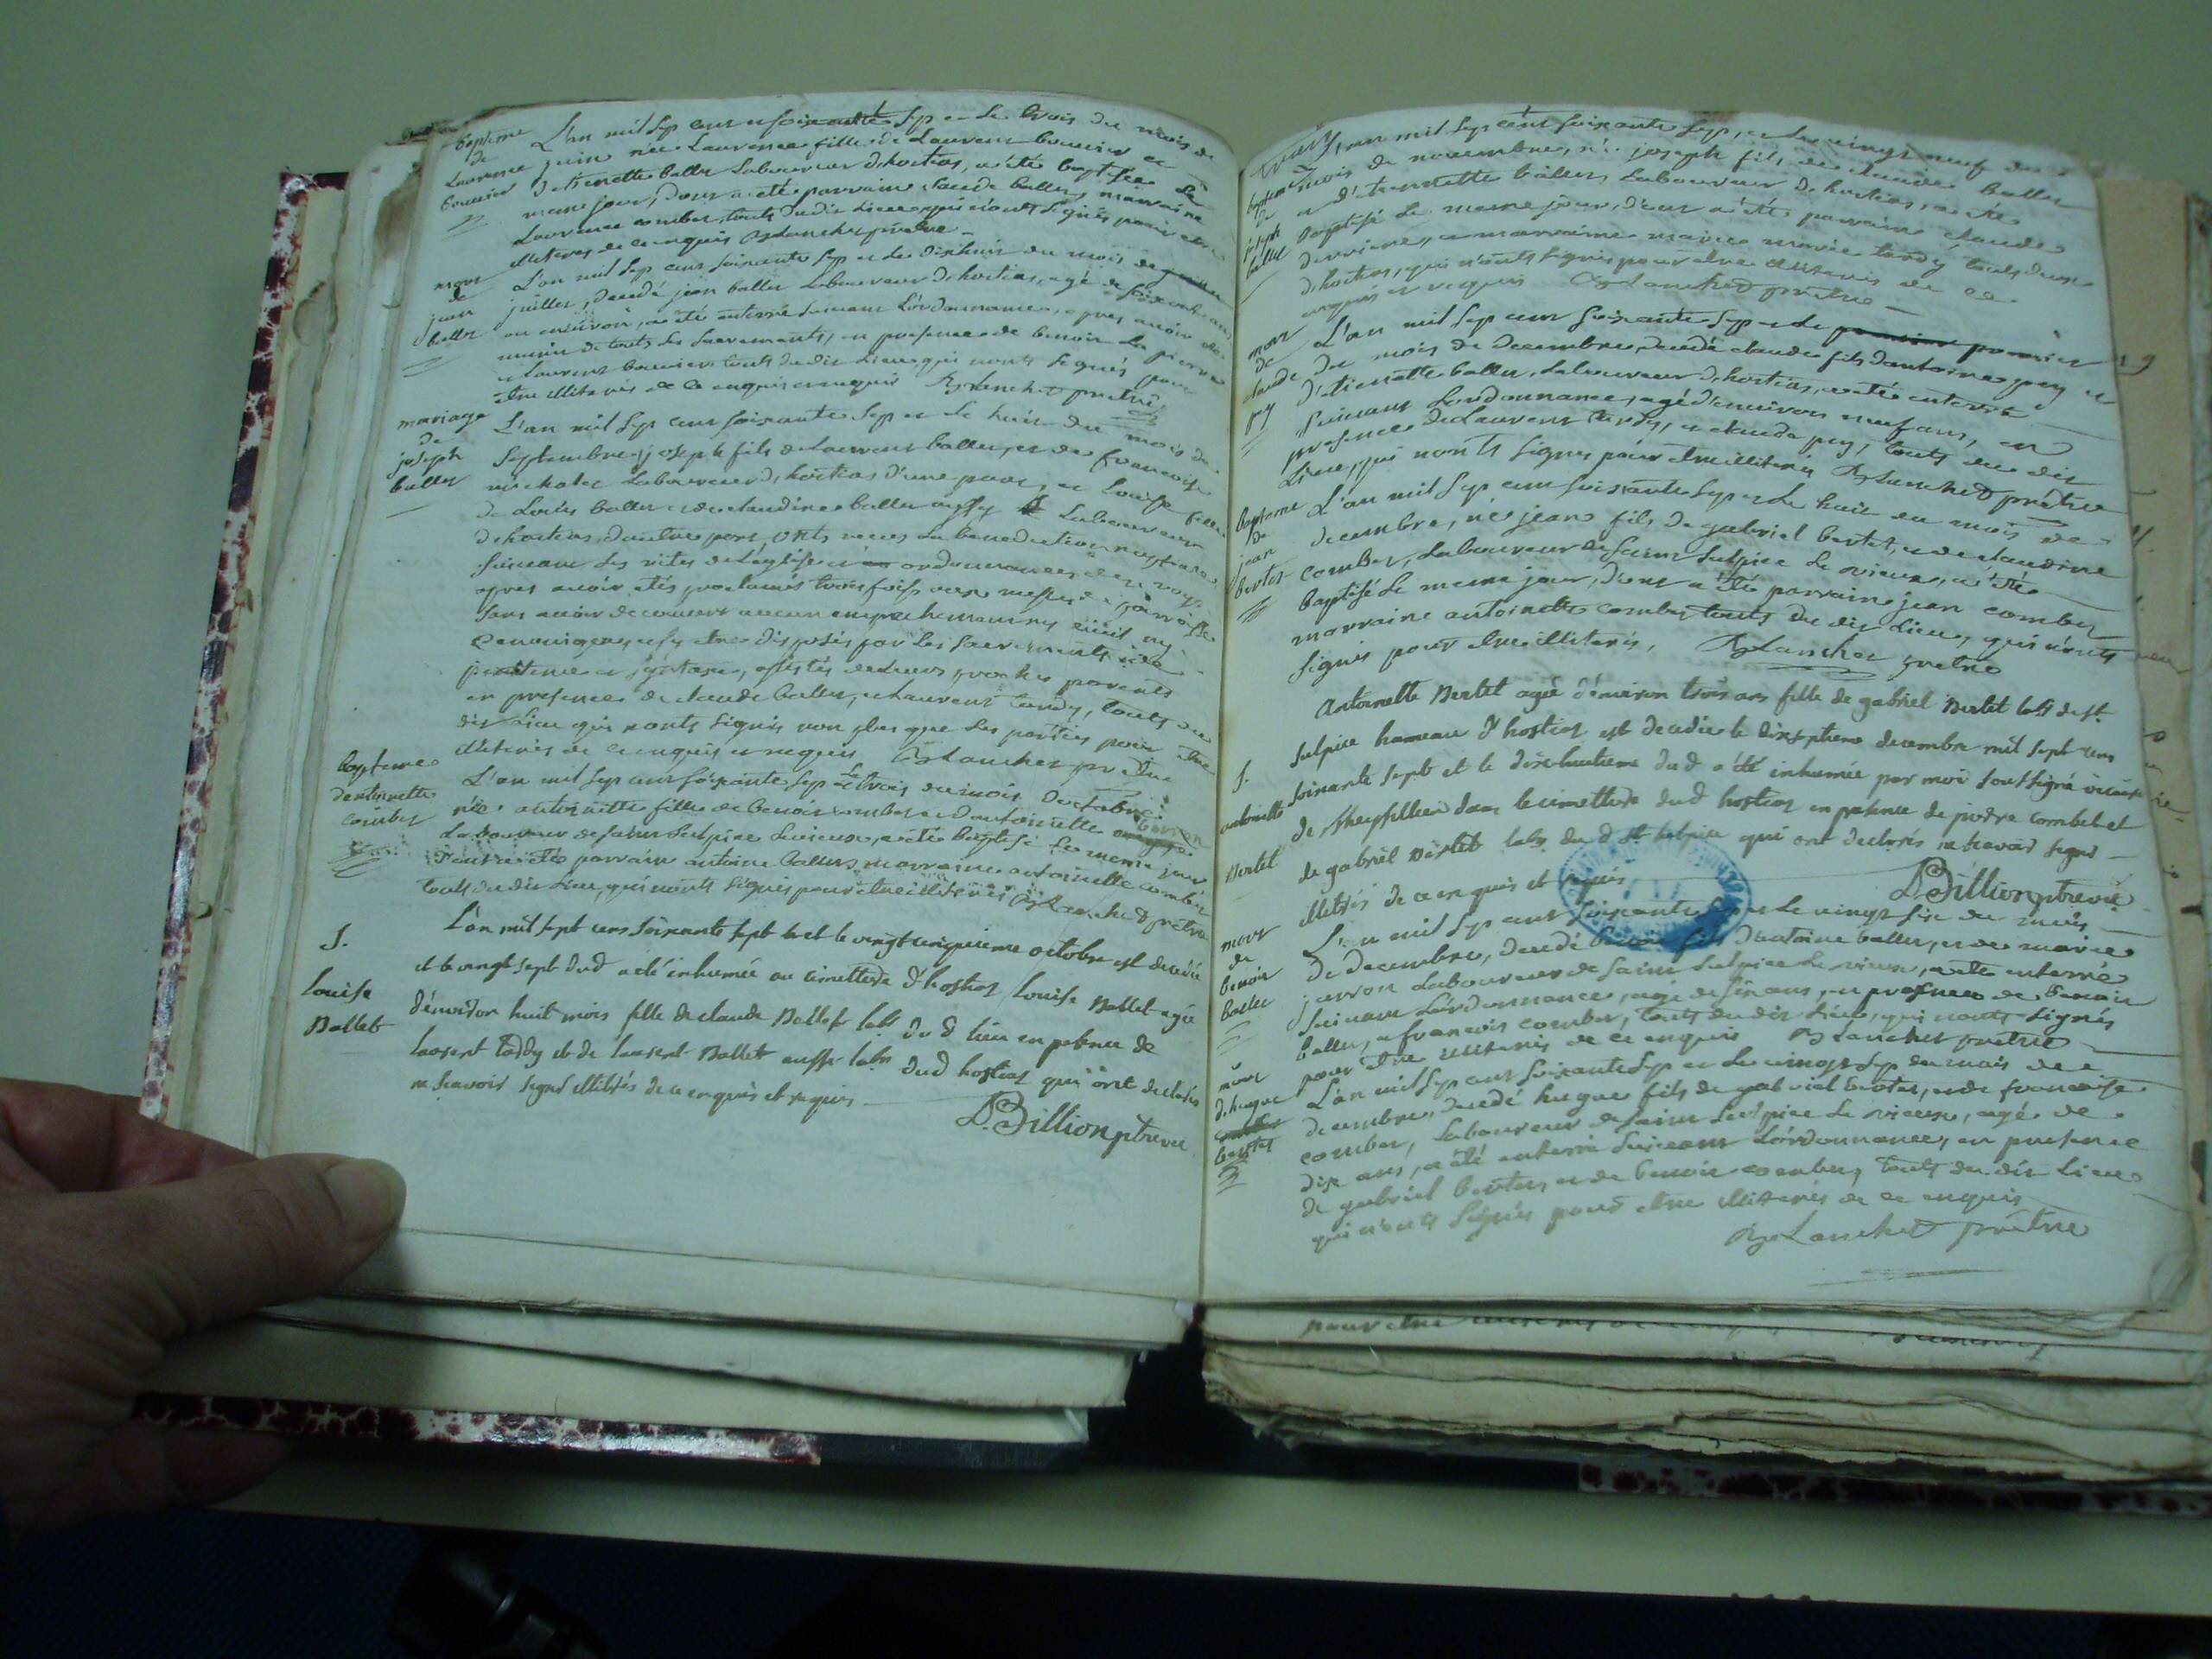 bapteme
de
Laurence
bouvier
L'an mil sep cens soixante sep et le trois du mois de
juin née Laurence fille de Laurent bouvier et
d'etienette ballet Laboureur d'hostias, a été baptisée le
meme jour, dont a été parrain claude ballet, marraine
Laurence combet, touts du dit Lieu qui n'onts signés pour etre
illiterés de ce enquis Blanchet prêtre
mort
de
jean
ballet
L'an mil sep cens soixante sep et le dixhuit du mois de
juillet, decedé jean ballet Laboureur d'hostias, agé de soixante ans
ou environ, a été enterré suivant L'ordonnance, apres avoir été
munis de touts les sacrements, en presence de benoit La pierre
et Laurent bouvier touts du dit Lieu qui n'onts signés pour
etre illiterés de ce enquis et requis Blanchet prêtre
mariage
de
joseph
ballet
L'an mil sep cens soixante sep et le huit du mois de
septembre, joseph fils de Laurent ballet, et de francoise
michalet Laboureur d'hostias d'une part, et Louise fille
de Louis ballet et de claudine ballet aussy Laboureur
d'hostias d'autre part, onts receus La benediction nuptiale
suivant les rites de L'eglise et ordonnances de nos roys
apres avoir etés proclamés trois fois aux messes de parroisse
sans avoir decouvert aucun empechement ny civil ny
canonique, et s'y etre disposés par les sacrements de
penitence et, assistés de Leurs proches parents
en presence de claude ballet, et Laurent tardy, touts du
dit Lieu qui n'onts signés non plus que les parties pour etre
illiterés de ce enquis et requis Blanchet prêtre
bapteme
d'antoinette
combet
L'an mil sep cens soixante sep Le trois du mois d'octobre
née antoinette fille de benoit combet et d'antoinette
Laboureur de saint sulpice Le vieux, a été baptisé Le meme jour
dont a été parrain antoine ballet, marraine antoinette combet
touts du dit Lieu, qui n'onts signés pour etre illiterés Blanchet prêtre
S.
Louise
Ballet
L'an mil sept cens soixante sept et le vingt cinquieme octobre est decedée
et le vingt sept dud a été inhumée au cimettiere d'hostias Louise Ballet agée
d'environ huit mois fille de claude Ballet labr dud lieu en presence de
laurent tardy et de laurent Ballet aussi labr dud hostias qui ont declarés
ne scavoir signé illitérés de ce enquis et requis
D. Billion ptre vic
bapteme
de
joseph
ballet
L'an mil sep cens soixante sep, et le vingt neuf du
mois de novembre, né joseph fils de claude ballet
et d'etiennette ballet, Laboureur d'hostias, a été
baptisé le meme jour, dont a été parrain claude
derriere, et marraine marie tardy touts deux
d'hostias, qui n'onts signés pour etre illiterés de ce
enquis et requis Blanchet prêtre
mort
de
claude
pey
L'an mil sep cens soixante sep et le premier
du mois de decembre, decedé claude fils d'antoine pey et
d'etienette ballet, Laboureur d'hostias, a été enterré
suivant L'ordonnance, agé d'environ neuf ans, en
presence de Laurent tardy, et claude pey, touts du dit
Lieu, qui n'onts signés pour etre illiterés Blanchet prêtre
bapteme
de
jean
bertet
L'an mil sep cens soixante sep et le huit du mois de
decembre, né jean fils de gabriel bertet, et de claudine
combet, Laboureur de saint sulpice Le vieux, a été
baptisé Le meme jour, dont a été parrain jean combet
marraine antoinette combet touts du dit Lieu, qui n'onts
signés pour etre illiterés, Blanchet prêtre
S.
antoinette
Bertet
Antoinette Bertet agée d'environ trois ans fille de gabriel Bertet labr de st
sulpice hameau d'hostias est decedée le dixseptieme decembre mil sept cens
soixante sept et le dixhuitieme dud a été inhumée par moi soussigné vicaire
de dans le cimettiere dud hostias en presence de pierre combet et
de gabriel Bertet labr dud st sulpice qui ont declarés ne scavoir signé
illitérés de ce enquis et requis
D. Billion ptre vic
mort
de
benoit
ballet
L'an mil sep cens soixante sep et le vingt six du mois
de decembre, decedé benoit fils d'antoine ballet, et de marie
jarron Laboureur de saint sulpice Le vieux, a été enterré
suivant L'ordonnance, agé de six ans, en presence de benoit
ballet, et francois combet, touts du dit Lieu, qui n'onts signés
pour etre illiterés de ce enquis Blanchet prêtre
mort
d'hugue
bertet
L'an mil sep cens soixante sep et le vingt sep du mois de
decembre, decedé hugue fils de gabriel bertet, et de francoise
combet, Laboureur de saint sulpice Le vieux, agé de
dix ans, a été enterré suivant L'ordonnance, en presence
de gabriel bertet, et de benoit combet, touts du dit Lieu
qui n'onts signés pour etre illiterés de ce enquis
Blanchet prêtre